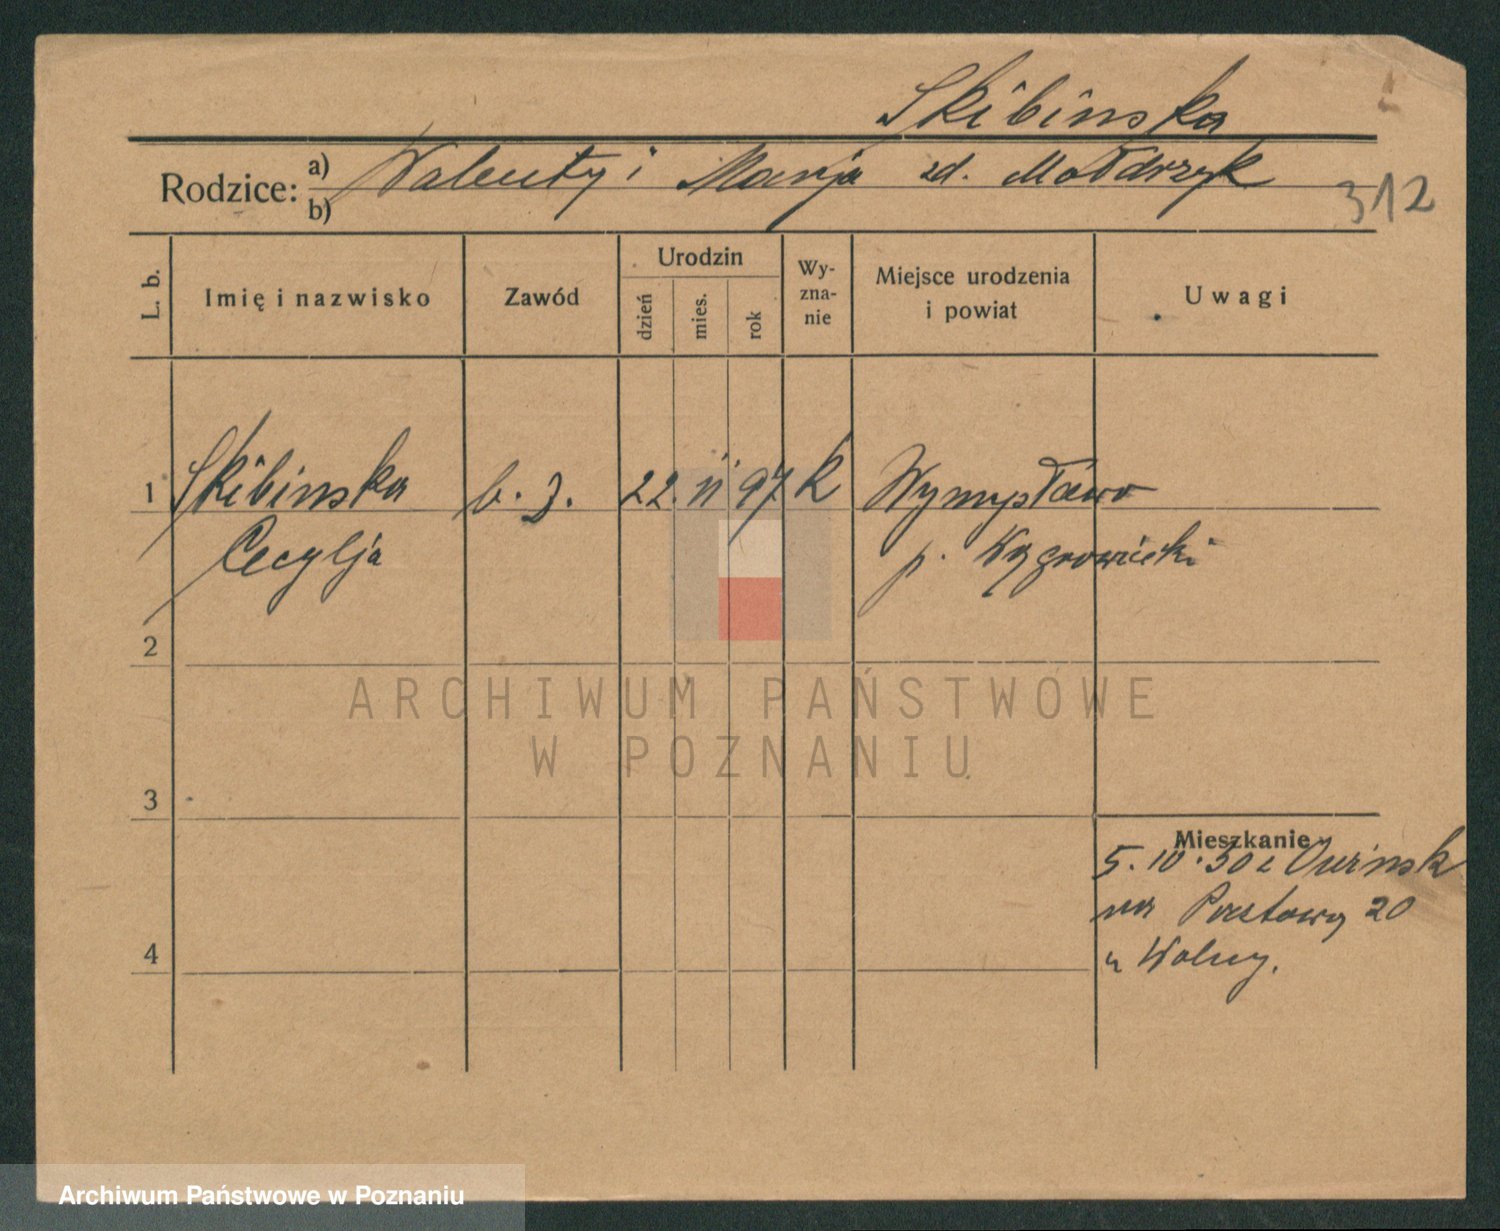 Skibinska
Rodzice: a) Walenty i Marja zd. Mołdrzyk
b)
312
L. b.
Imię i nazwisko
Zawód
Urodzin
dzień
mies.
rok
Wy-
zna-
nie
Miejsce urodzenia
i powiat
Uwagi
1 Skibinska b. z. 22. 11 97 k Wymysławo
Cecylja p. Wągrowiecki
2
ARCHIWUM PAŃSTWOWE
W POZNANIU
3
Mieszkanie
5. IV. 30 z Owinsk
na Pocztową 20
u Wolny.
4
Archiwum Państwowe w Poznaniu